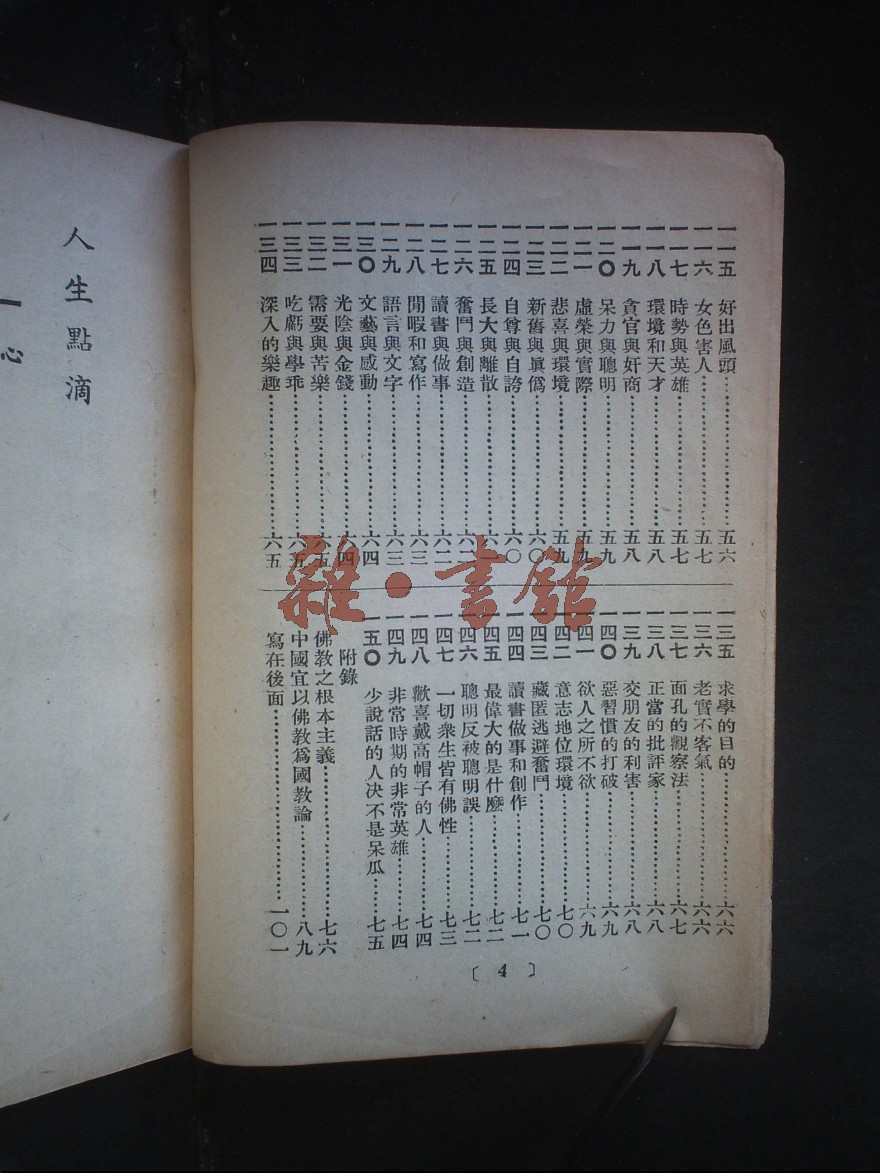 一一五 好出風頭……五六
一一六 女色害人……五七
一一七 時勢與英雄……五七
一一八 環境和天才……五八
一一九 貪官與奸商……五八
一二〇 呆力與聰明……五九
一二一 虛榮與實際……五九
一二二 悲喜與環境……五九
一二三 新舊與眞僞……六〇
一二四 自尊與自誇……六〇
一二五 長大與離散……六一
一二六 奮鬥與創造……六二
一二七 讀書與做事……六二
一二八 閒暇和寫作……六三
一二九 語言與文字……六三
一三〇 文藝與感動……六四
一三一 光陰與金錢……六四
一三二 需要與苦樂……六五
一三三 吃虧與學乖……六五
一三四 深入的樂趣……六五
一三五 求學的目的……六六
一三六 老實不客氣……六六
一三七 面孔的觀察法……六七
一三八 正當的批評家……六八
一三九 交朋友的利害……六八
一四〇 惡習慣的打破……六九
一四一 欲人之所不欲……六九
一四二 意志地位環境……七〇
一四三 藏匿逃避奮鬥……七〇
一四四 讀書做事和創作……七一
一四五 最偉大的是什麼……七二
一四六 聰明反被聰明誤……七二
一四七 一切衆生皆有佛性……七三
一四八 歡喜戴高帽子的人……七四
一四九 非常時期的非常英雄……七四
一五〇 少說話的人決不是呆瓜……七五
附錄
佛教之根本主義……七六
中國宜以佛教爲國教論……八九
寫在後面……一〇一
〔4〕
人生點滴
一 心
雜·書館